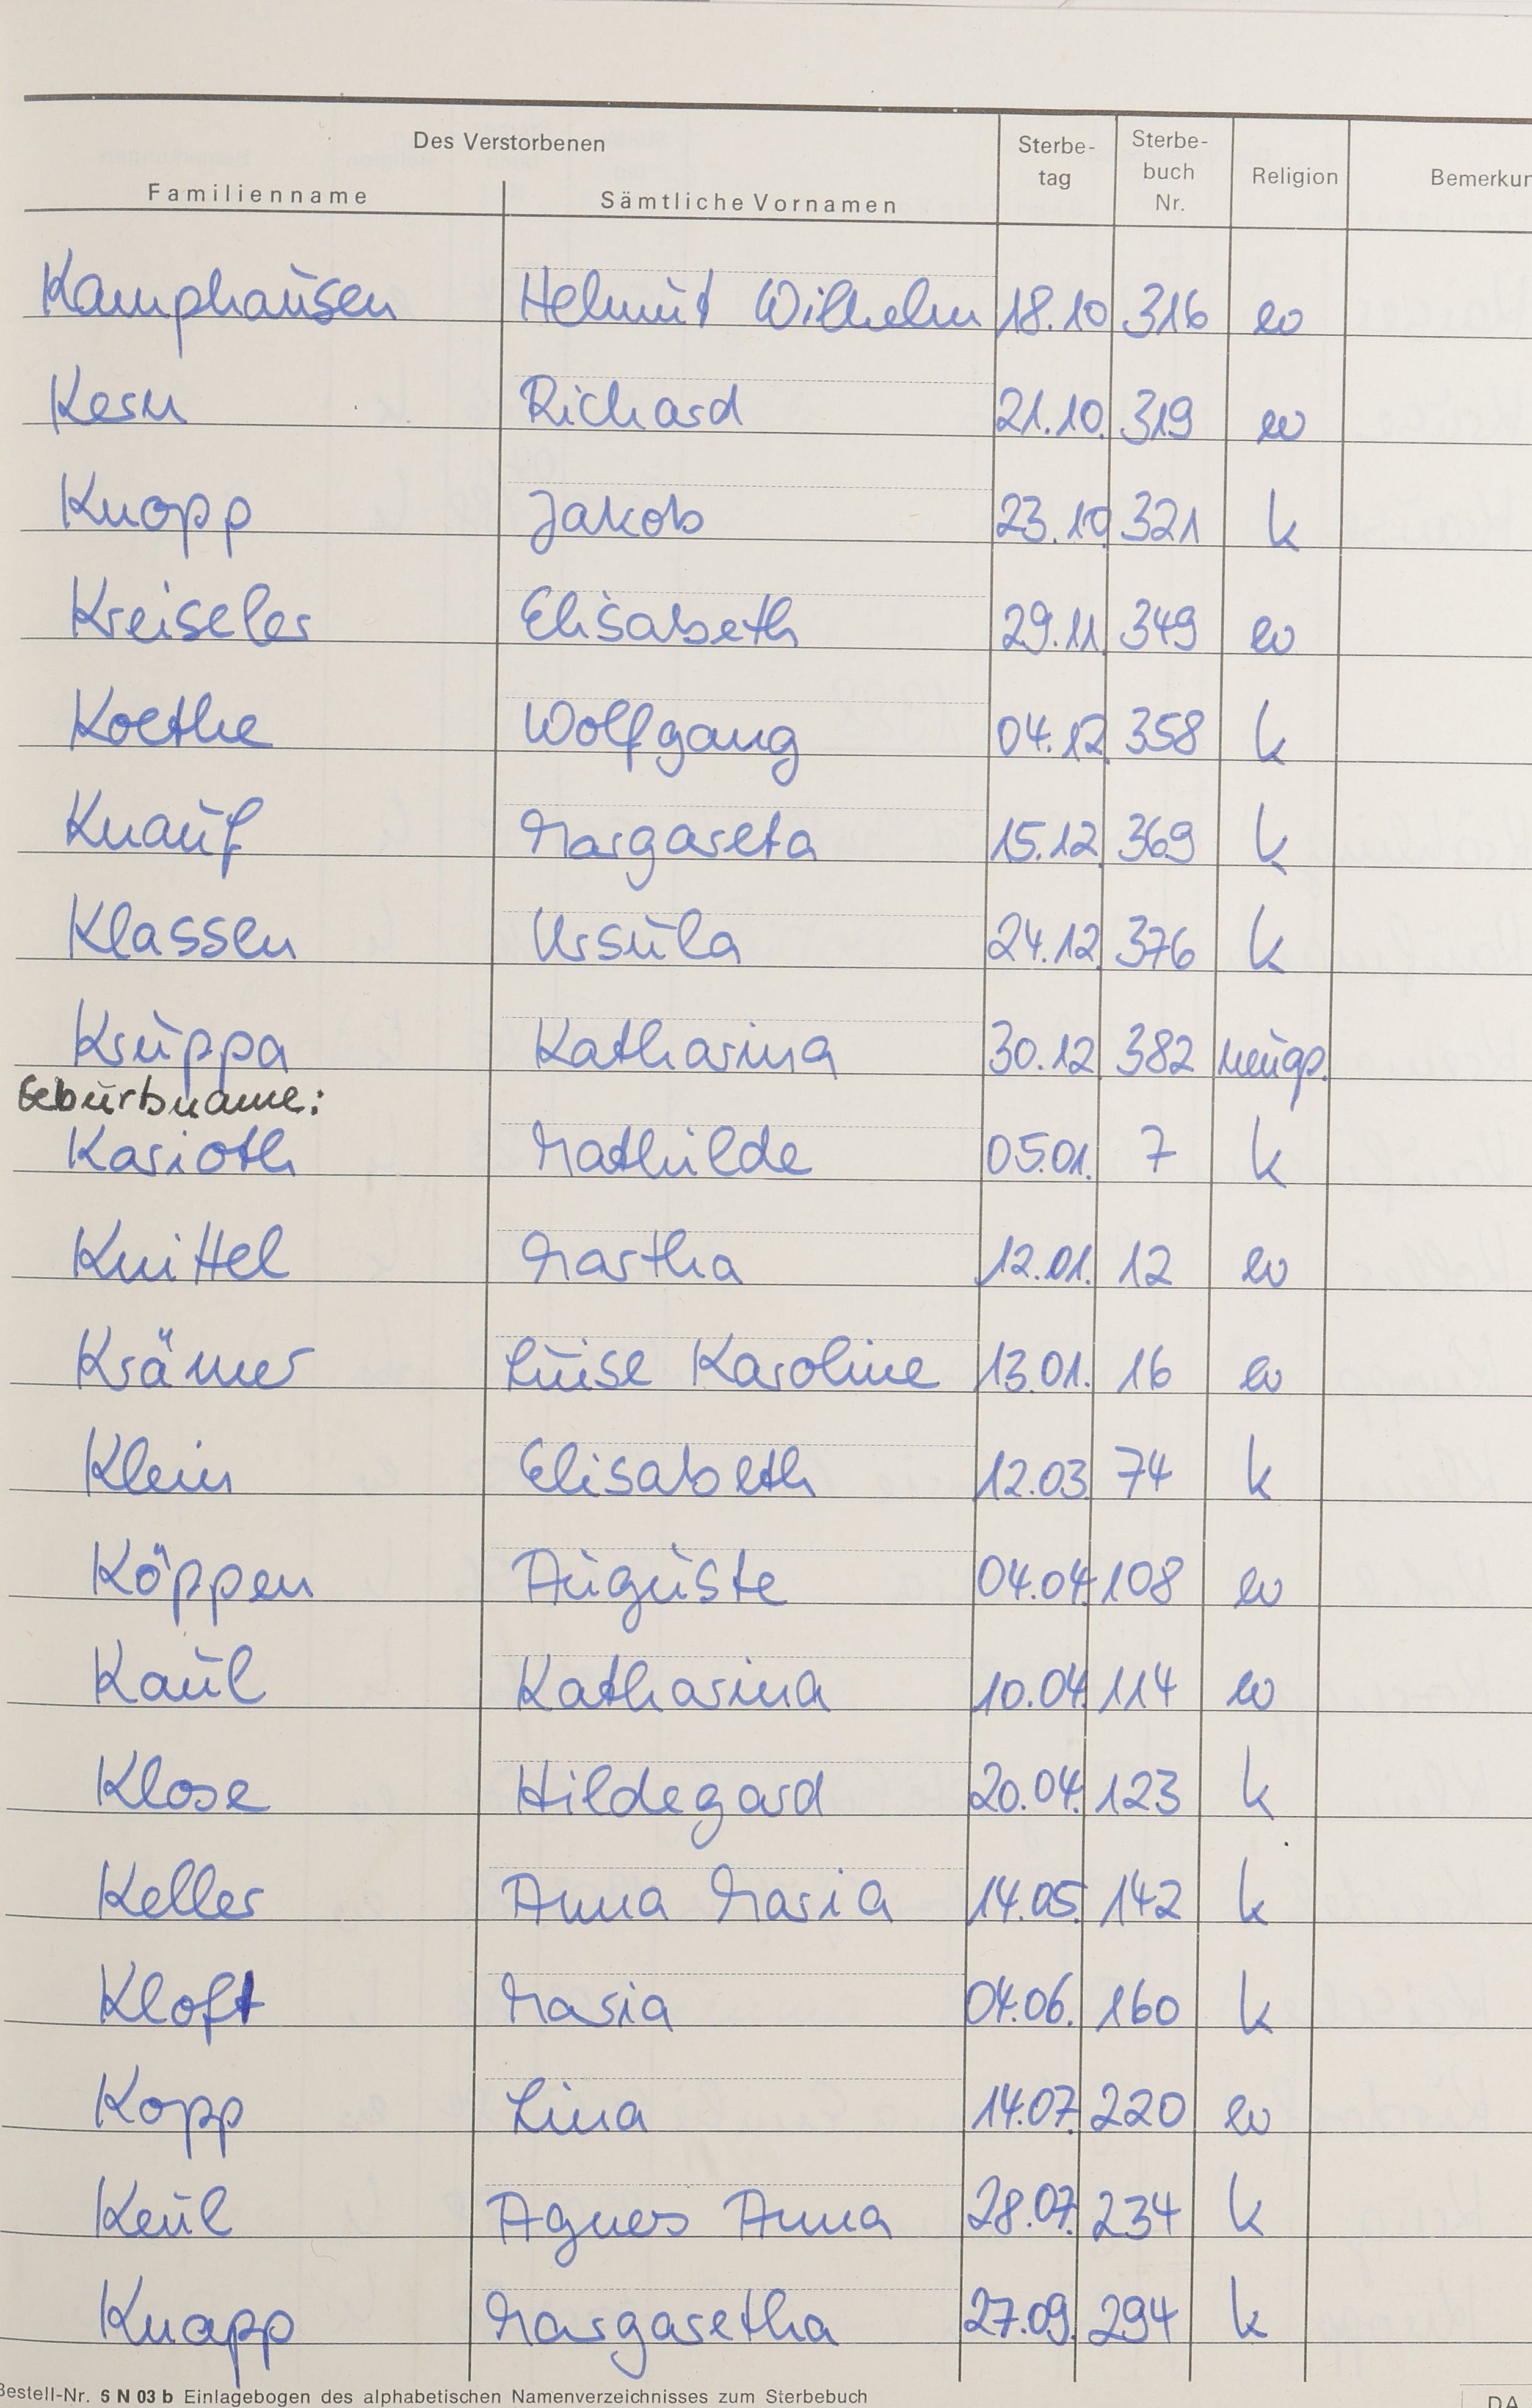 Des Verstorbenen
Sterbe-
tag
Sterbe-
buch
Nr.
Religion
Bemerkun
Familienname
Sämtliche Vornamen
Kamphausen Helmut Wilhelm 18.10 316 ev
Kern Richard 21.10. 319 ev
Knopp Jakob 23.10 321 k
Kreiseler Elisabeth 29.11. 349 ev
Koethe Wolfgang 04.12. 358 k
Knauf Margareta 15.12. 369 k
Klassen Ursula 24.12. 376 k
Kruppa Katharina 30.12. 382 neuap.
Geburtsname:
Karioth Mathilde 05.01. 7 k
Knittel Martha 12.01. 12 ev
Krämer Luise Karoline 13.01. 16 ev
Klein Elisabeth 12.03. 74 k
Köppen Auguste 04.04. 108 ev
Kaul Katharina 10.04. 114 ev
Klose Hildegard 20.04. 123 k
Keller Anna Maria 14.05. 142 k
Kloft Maria 04.06. 160 k
Kopp Lina 14.07. 220 ev
Keul Agnes Anna 28.07. 234 k
Knapp Margaretha 27.09. 294 k
Bestell-Nr. 5 N 03 b Einlagebogen des alphabetischen Namenverzeichnisses zum Sterbebuch
DA